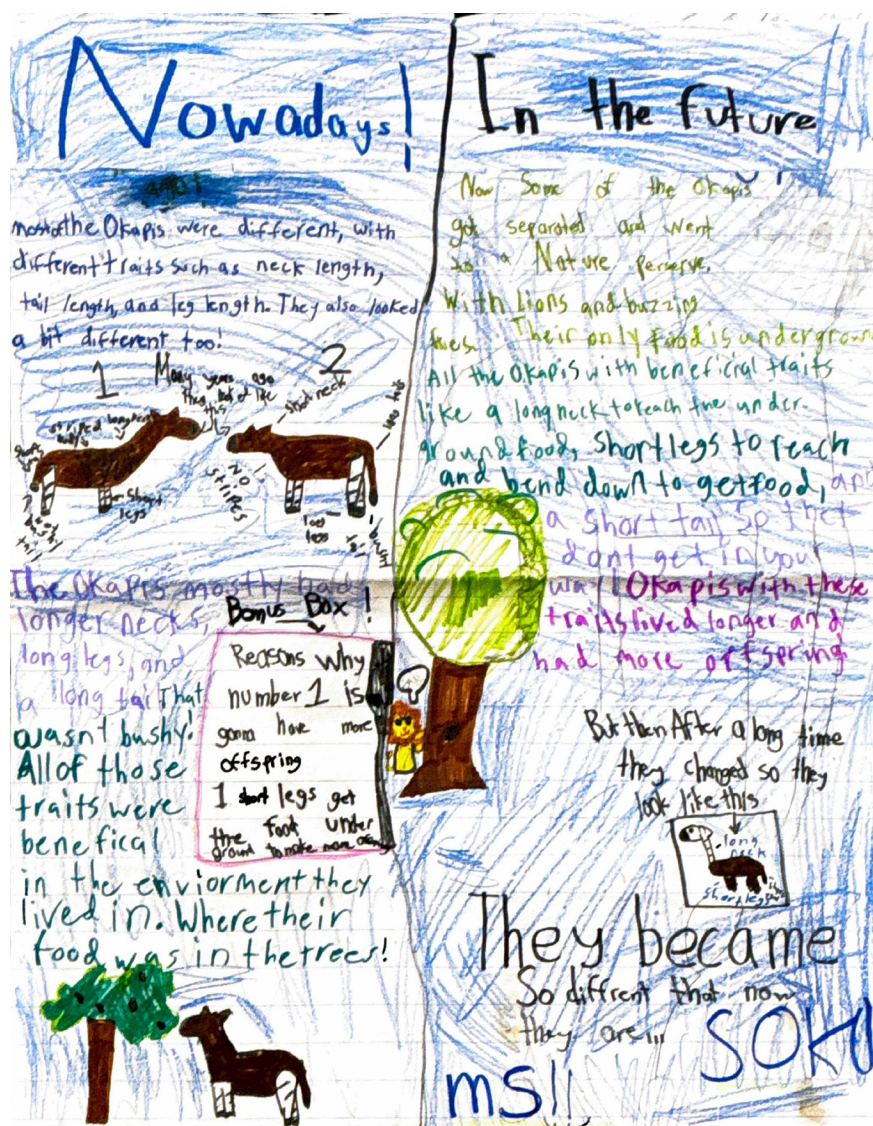 Nowadays!
ago!
most of the Okapis were different, with
different traits such as neck length,
tail length, and leg length. They also looked
a bit different too!
1
Many years ago
they looked like
this
2
short neck
striped
body
long neck
short
legs
NO
stripes
long
legs
The Okapis mostly had
longer necks,
long legs, and
a long tail That
wasn't bushy!
All of those
traits were
benefical
in the enviorment they
lived in. Where their
food was in the trees!
Bonus Box!
Reasons why
number 1 is
gonna have more
offspring
1 short legs get
the food under
ground to make more
In the future
Now Some of the Okapis
got separated and went
to a Nature perserve.
With Lions and buzzing
Their only food is undergroun
All the Okapis with beneficial traits
like a long neck to reach the under-
ground food, short legs to reach
and bend down to get food, and
a short tail so they
dont get in your
way! Okapis with these
traits lived longer and
had more offspring
But then After a long time
they changed so they
look like this
long
neck
short legs
They became
So diffrent that now
they are...
SOKU
MS!!